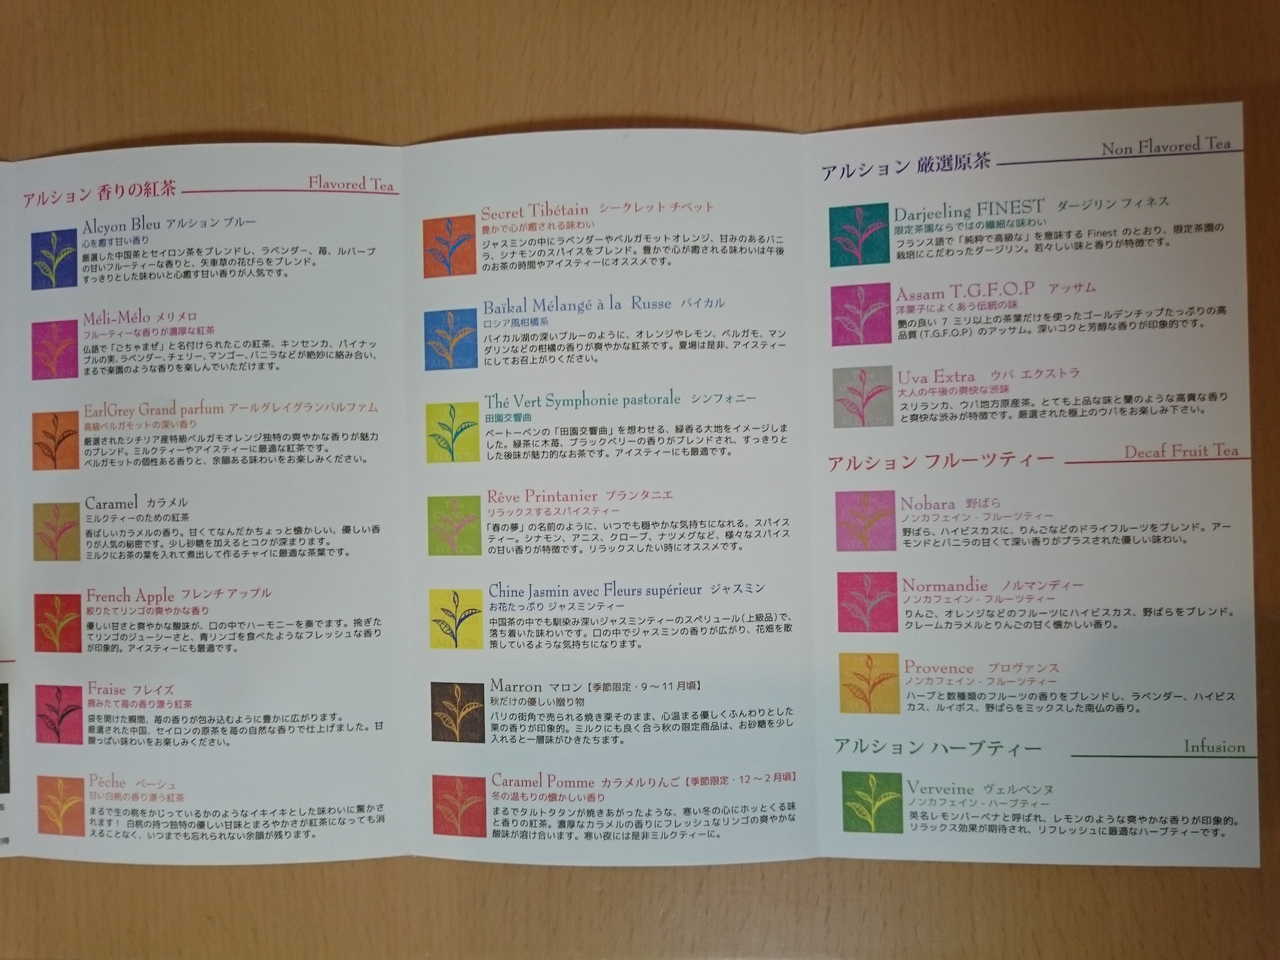 アルション 香りの紅茶
Flavored Tea
Alcyon Bleu アルション ブルー
心を癒す甘い香り
厳選した中国茶とセイロン茶をブレンドし、ラベンダー、苺、ルバーブ
の甘いフルーティーな香りと、矢車草の花びらをブレンド。
すっきりとした味わいと心癒す甘い香りが人気です。
Méli-Mélo メリメロ
フルーティーな香りが濃厚な紅茶
仏語で「ごちゃまぜ」と名付けられたこの紅茶、キンセンカ、パイナッ
プルの実、ラベンダー、チェリー、マンゴー、バニラなどが絶妙に絡み合い、
まるで楽園のような香りを楽しんでいただけます。
EarlGrey Grand parfum アールグレイグランパルファム
高級ベルガモットの深い香り
厳選されたシチリア産特級ベルガモオレンジ独特の爽やかな香りが魅力
のブレンド。ミルクティーやアイスティーに最適な紅茶です。
ベルガモットの個性ある香りと、余韻ある味わいをお楽しみください。
Caramel カラメル
ミルクティーのための紅茶
香ばしいカラメルの香り。甘くてなんだかちょっと懐かしい、優しい香
りが人気の秘密です。少し砂糖を加えるとコクが深まります。
ミルクにお茶の葉を入れて煮出して作るチャイに最適な茶葉です。
French Apple フレンチ アップル
絞りたてリンゴの爽やかな香り
優しい甘さと爽やかな酸味が、口の中でハーモニーを奏でます。捥ぎた
てリンゴのジューシーさと、青リンゴを食べたようなフレッシュな香り
が印象的。アイスティーにも最適です。
Fraise フレイズ
摘みたて苺の香り漂う紅茶
袋を開けた瞬間、苺の香りが包み込むように豊かに広がります。
厳選された中国、セイロンの原茶を苺の自然な香りで仕上げました。甘
酸っぱい味わいをお楽しみください。
Pèche ペーシュ
甘い白桃の香り漂う紅茶
まるで生の桃をかじっているかのようなイキイキとした味わいに驚かさ
れます! 白桃の持つ独特の優しい甘味とまろやかさが紅茶になっても消
えることなく、いつまでも忘れられない余韻が残ります。
Secret Tibétain シークレット チベット
豊かで心が癒される味わい
ジャスミンの中にラベンダーやベルガモットオレンジ、甘みのあるバニ
ラ、シナモンのスパイスをブレンド。豊かで心が癒される味わいは午後
のお茶の時間やアイスティーにオススメです。
Baïkal Mélangé à la Russe バイカル
ロシア風柑橘系
バイカル湖の深いブルーのように、オレンジやレモン、ベルガモ、マン
ダリンなどの柑橘の香りが爽やかな紅茶です。夏場は是非、アイスティー
にしてお召上がりください。
Thé Vert Symphonie pastorale シンフォニー
田園交響曲
ベートーベンの「田園交響曲」を想わせる、緑香る大地をイメージしま
した。緑茶に木苺、ブラックベリーの香りがブレンドされ、すっきりと
した後味が魅力的なお茶です。アイスティーにも最適です。
Rêve Printanier プランタニエ
リラックスするスパイスティー
「春の夢」の名前のように、いつでも穏やかな気持ちになれる、スパイス
ティー。シナモン、アニス、クローブ、ナツメグなど、様々なスパイス
の甘い香りが特徴です。リラックスしたい時にオススメです。
Chine Jasmin avec Fleurs supérieur ジャスミン
お花たっぷり ジャスミンティー
中国茶の中でも馴染み深いジャスミンティーのスペリュール(上級品)で、
落ち着いた味わいです。口の中でジャスミンの香りが広がり、花畑を散
策しているような気持ちになります。
Marron マロン【季節限定・9〜11月頃】
秋だけの優しい贈り物
パリの街角で売られる焼き栗そのまま、心温まる優しくふんわりとした
栗の香りが印象的。ミルクにも良く合う秋の限定商品は、お砂糖を少し
入れると一層味がひきたちます。
Caramel Pomme カラメルりんご【季節限定・12〜2月頃】
冬の温もりの懐かしい香り
まるでタルトタタンが焼きあがったような、寒い冬の心にホッとくる味
と香りの紅茶。濃厚なカラメルの香りにフレッシュなリンゴの爽やかな
酸味が溶け合います。寒い夜には是非ミルクティーに。
アルション 厳選原茶
Non Flavored Tea
Darjeeling FINEST ダージリン フィネス
限定茶園ならではの繊細な味わい
フランス語で「純粋で高級な」を意味する Finest のとおり、限定茶園の
栽培にこだわったダージリン。若々しい味と香りが特徴です。
Assam T.G.F.O.P アッサム
洋菓子によくあう伝統の味
艶の良い 7 ミリ以上の茶葉だけを使ったゴールデンチップたっぷりの高
品質 (T.G.F.O.P) のアッサム。深いコクと芳醇な香りが印象的です。
Uva Extra ウバ エクストラ
大人の午後の爽快な渋味
スリランカ、ウバ地方原産茶。とても上品な味と蘭のような高貴な香り
と爽快な渋みが特徴です。厳選された極上のウバをお楽しみ下さい。
アルション フルーツティー
Decaf Fruit Tea
Nobara 野ばら
ノンカフェイン - フルーツティー
野ばら、ハイビスカスに、りんごなどのドライフルーツをブレンド。アー
モンドとバニラの甘くて深い香りがプラスされた優しい味わい。
Normandie ノルマンディー
ノンカフェイン - フルーツティー
りんご、オレンジなどのフルーツにハイビスカス、野ばらをブレンド。
クレームカラメルとりんごの甘く懐かしい香り。
Provence プロヴァンス
ノンカフェイン - フルーツティー
ハーブと数種類のフルーツの香りをブレンドし、ラベンダー、ハイビス
カス、ルイボス、野ばらをミックスした南仏の香り。
アルション ハーブティー
Infusion
Verveine ヴェルベンヌ
ノンカフェイン - ハーブティー
英名レモンバーベナと呼ばれ、レモンのような爽やかな香りが印象的。
リラックス効果が期待され、リフレッシュに最適なハーブティーです。